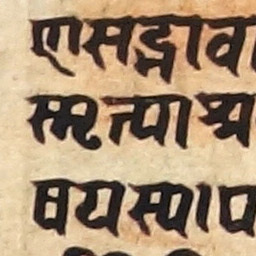 णसद्भाव
स्मृत्याश्र
षयस्याप